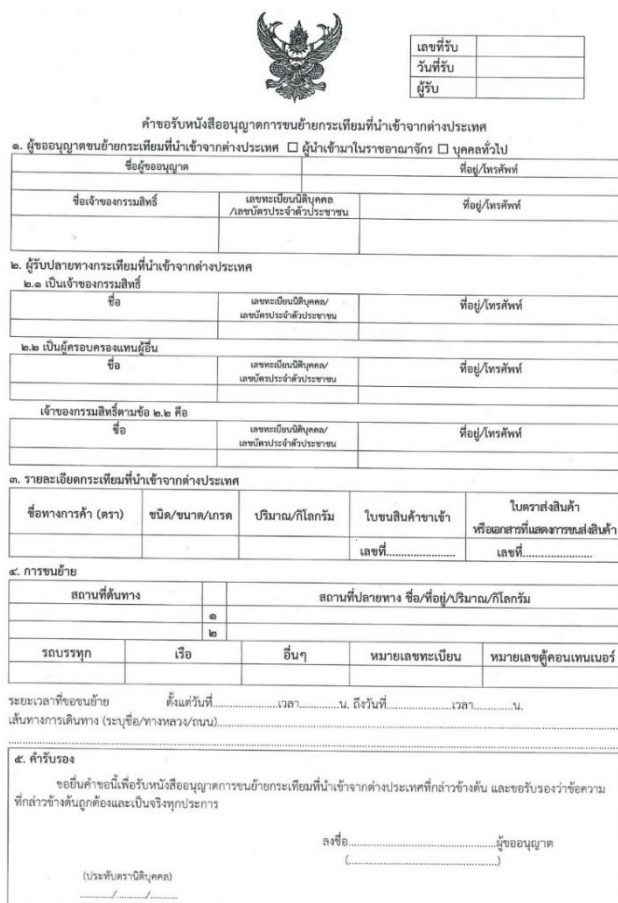 เลขที่รับ
วันที่รับ
ผู้รับ
คำขอรับหนังสืออนุญาตการขนย้ายกระเทียมที่นำเข้าจากต่างประเทศ
๑. ผู้ขออนุญาตขนย้ายกระเทียมที่นำเข้าจากต่างประเทศ ☐ ผู้นำเข้ามาในราชอาณาจักร ☐ บุคคลทั่วไป
ชื่อผู้ขออนุญาต ที่อยู่/โทรศัพท์
ชื่อเจ้าของกรรมสิทธิ์ เลขทะเบียนนิติบุคคล ที่อยู่/โทรศัพท์
/เลขบัตรประจำตัวประชาชน
๒. ผู้รับปลายทางกระเทียมที่นำเข้าจากต่างประเทศ
๒.๑ เป็นเจ้าของกรรมสิทธิ์
ชื่อ เลขทะเบียนนิติบุคคล/ ที่อยู่/โทรศัพท์
เลขบัตรประจำตัวประชาชน
๒.๒ เป็นผู้ครอบครองแทนผู้อื่น
ชื่อ เลขทะเบียนนิติบุคคล/ ที่อยู่/โทรศัพท์
เลขบัตรประจำตัวประชาชน
เจ้าของกรรมสิทธิ์ตามข้อ ๒.๒ คือ
ชื่อ เลขทะเบียนนิติบุคคล/ ที่อยู่/โทรศัพท์
เลขบัตรประจำตัวประชาชน
๓. รายละเอียดกระเทียมที่นำเข้าจากต่างประเทศ
ชื่อทางการค้า (ตรา) ชนิด/ขนาด/เกรด ปริมาณ/กิโลกรัม ใบขนสินค้าขาเข้า ใบตราส่งสินค้า
หรือเอกสารที่แสดงการขนส่งสินค้า
เลขที่....................... เลขที่.......................
๔. การขนย้าย
สถานที่ต้นทาง สถานที่ปลายทาง ชื่อ/ที่อยู่/ปริมาณ/กิโลกรัม
๑
๒
รถบรรทุก เรือ อื่นๆ หมายเลขทะเบียน หมายเลขตู้คอนเทนเนอร์
ระยะเวลาที่ขอขนย้าย ตั้งแต่วันที่......................เวลา.............น. ถึงวันที่......................เวลา.............น.
เส้นทางการเดินทาง (ระบุชื่อ/ทางหลวง/ถนน)..........................................................................
๕. คำรับรอง
ขอยื่นคำขอนี้เพื่อรับหนังสืออนุญาตการขนย้ายกระเทียมที่นำเข้าจากต่างประเทศที่กล่าวข้างต้น และขอรับรองว่าข้อความ
ที่กล่าวข้างต้นถูกต้องและเป็นจริงทุกประการ
ลงชื่อ..............................................ผู้ขออนุญาต
(..............................................)
(ประทับตรานิติบุคคล)
........../........../..........